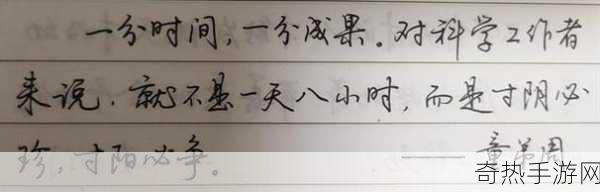 一分时间，一分成果。对科学工作者
来说，就不是一天八小时，而是寸阴必
珍，寸阳必争。
——童第周
奇热手游网